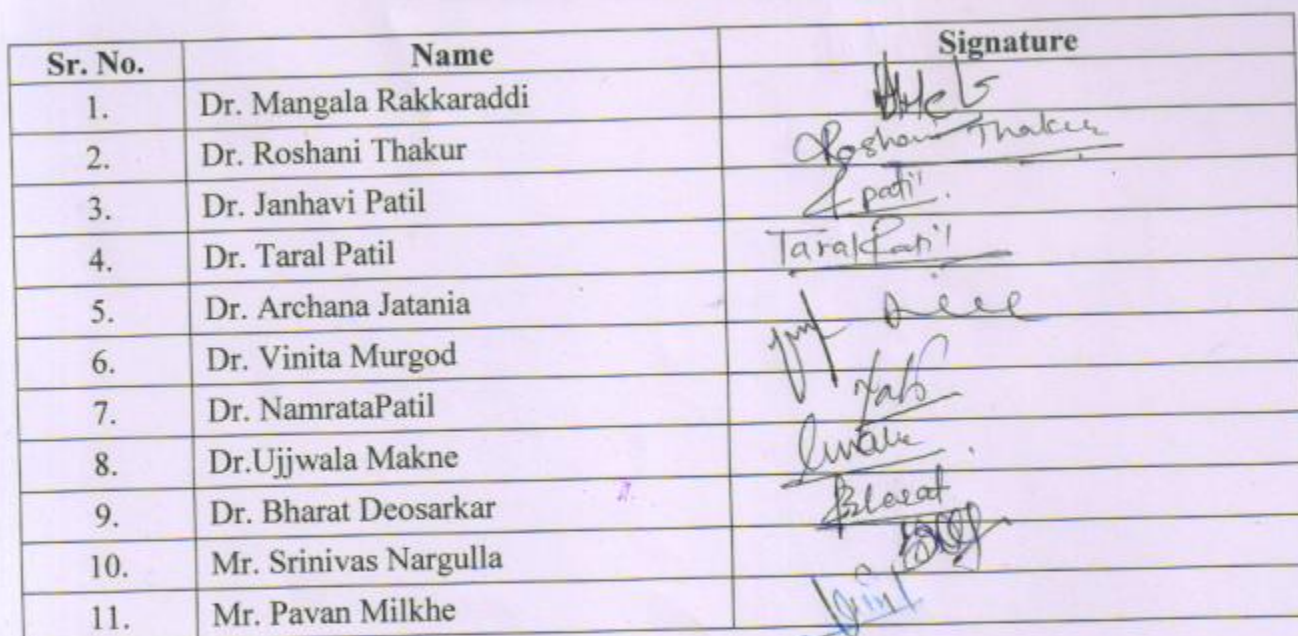 Sr. No. Name Signature
1. Dr. Mangala Rakkaraddi
2. Dr. Roshani Thakur Roshani Thakur
3. Dr. Janhavi Patil Patil
4. Dr. Taral Patil Taral Patil
5. Dr. Archana Jatania
6. Dr. Vinita Murgod
7. Dr. NamrataPatil
8. Dr.Ujjwala Makne
9. Dr. Bharat Deosarkar Bharat
10. Mr. Srinivas Nargulla
11. Mr. Pavan Milkhe